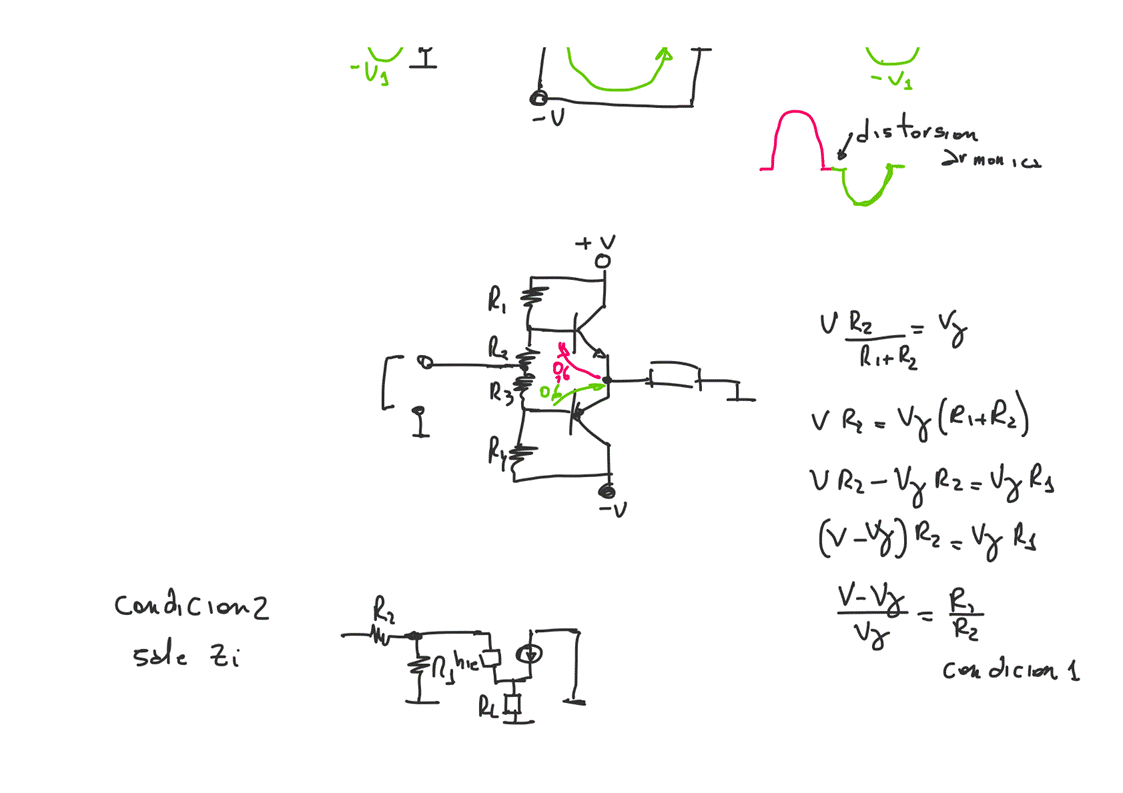 -V1
-V
-V1
distorsion
armonica
+V
R1
R2
0,6
R3
0,6
R4
-V
V R2 / R1+R2 = Vγ
V R2 = Vγ (R1+R2)
V R2 - Vγ R2 = Vγ R1
(V - Vγ) R2 = Vγ R1
V - Vγ / Vγ = R1 / R2
condicion 1
Condicion 2
sale Zi
R2
R1
hie
RL